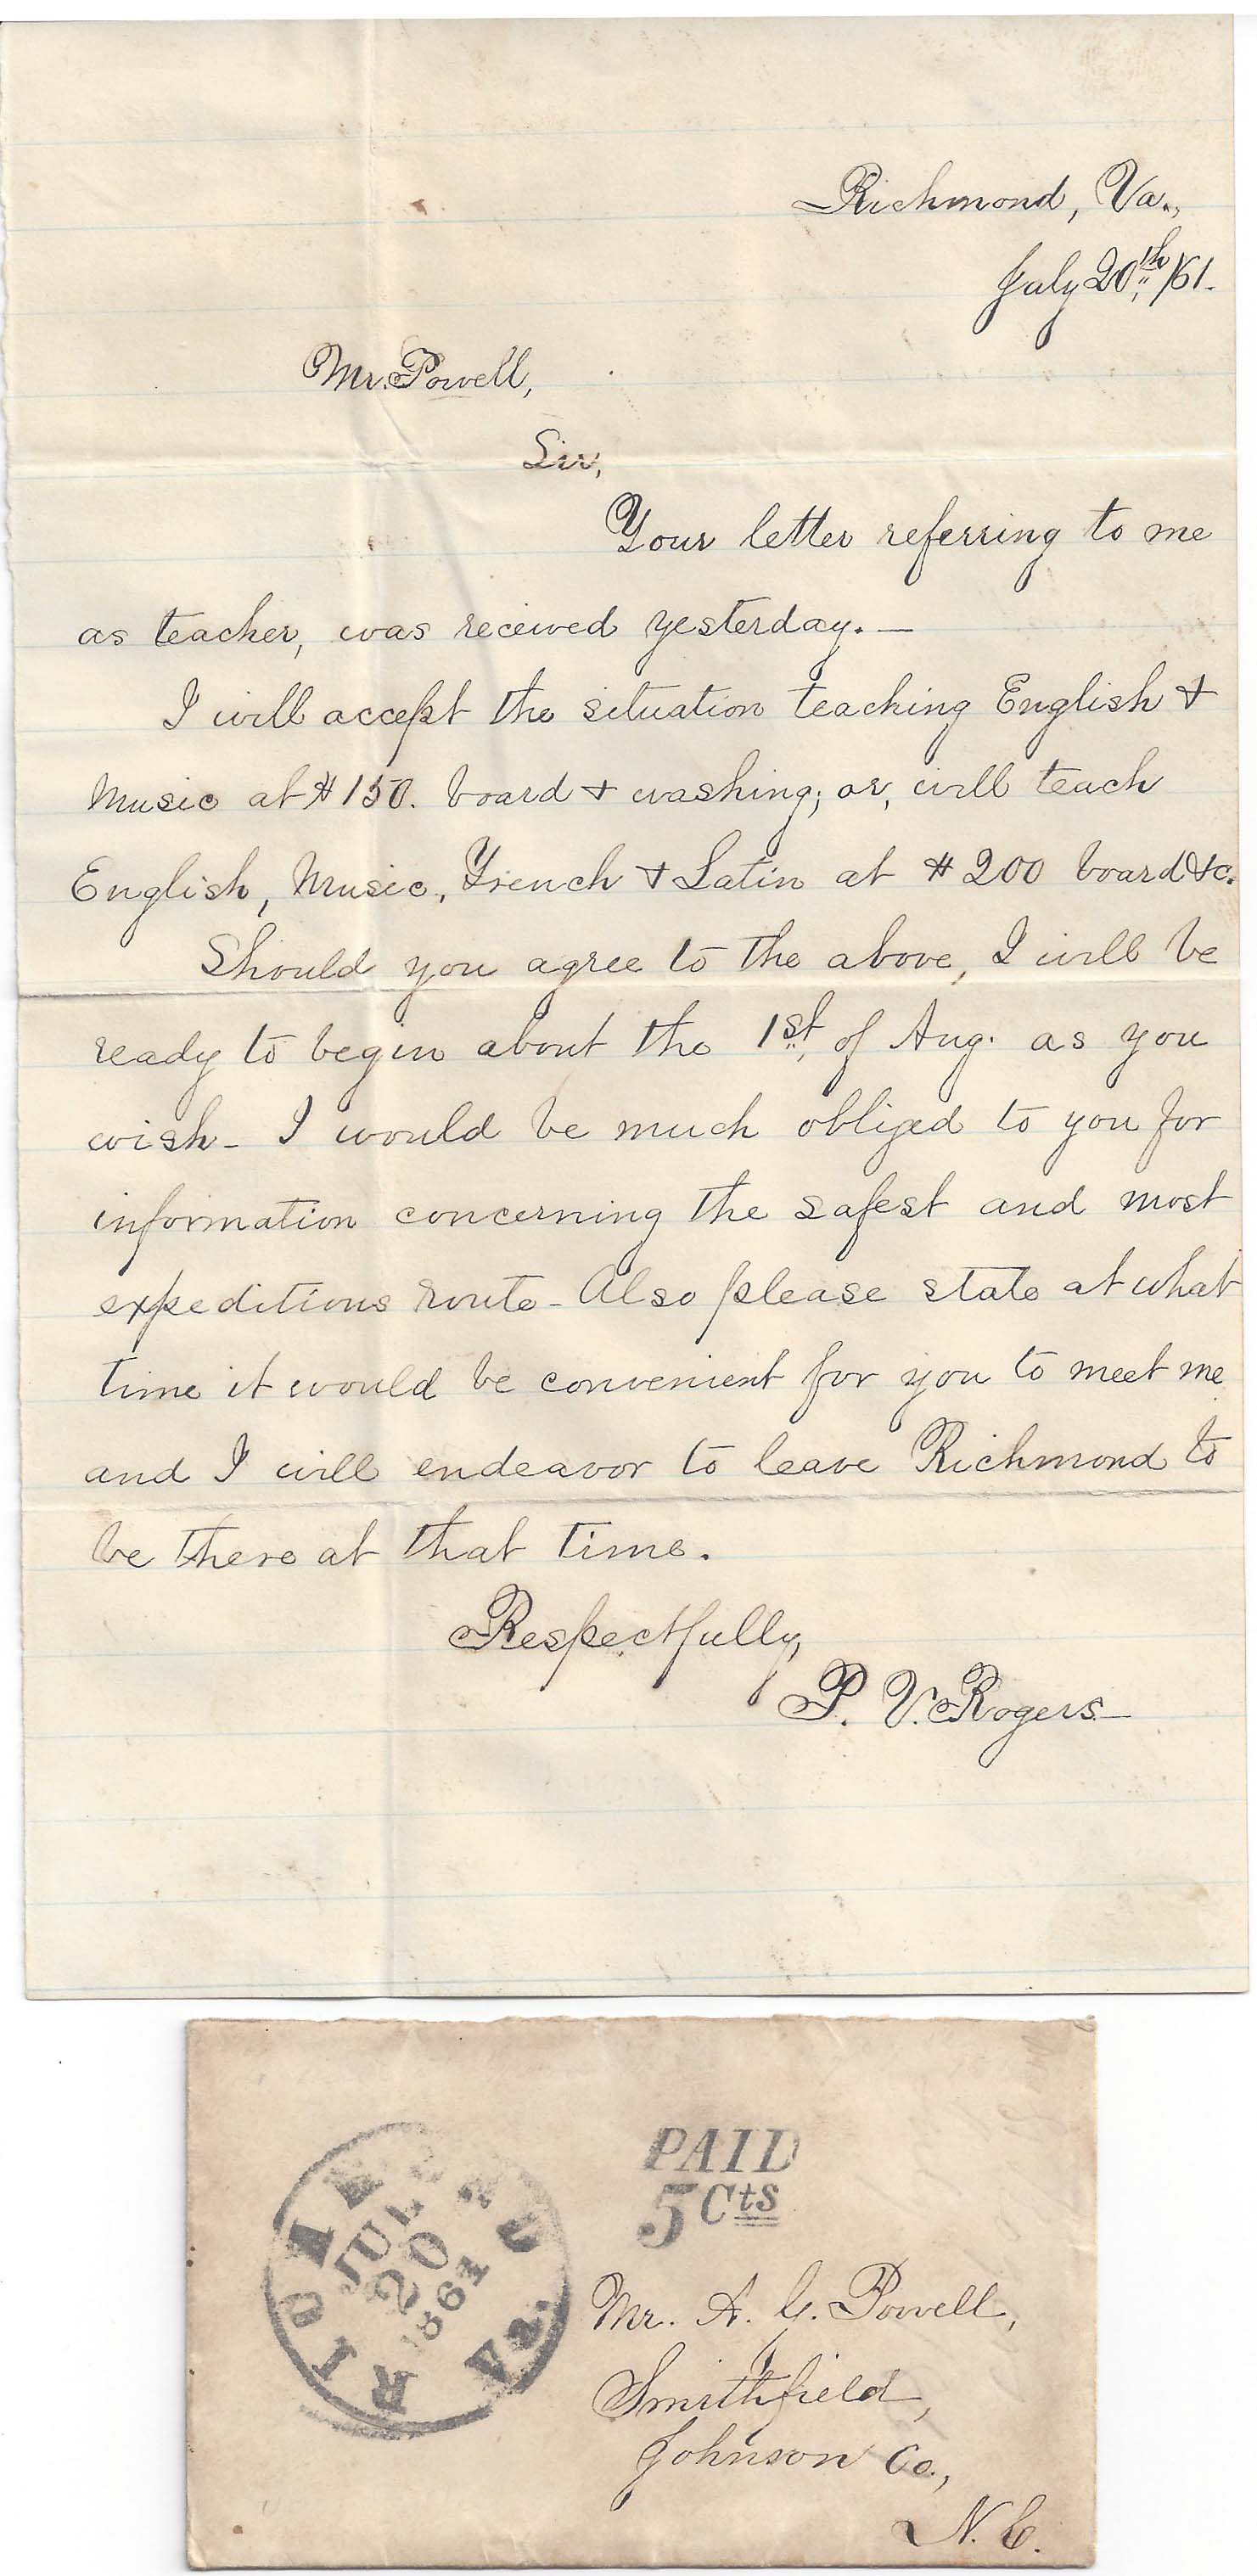 Richmond, Va.,
July 20th /61.
Mr. Powell,
Sir,
Your letter referring to me
as teacher, was received yesterday. —
I will accept the situation teaching English &
Music at $150. board & washing; or, will teach
English, Music, French & Latin at $200 board &c.
Should you agree to the above, I will be
ready to begin about the 1st, of Aug. as you
wish - I would be much obliged to you for
information concerning the safest and most
expeditious route - Also please state at what
time it would be convenient for you to meet me
and I will endeavor to leave Richmond to
be there at that time.
Respectfully,
P. V. Rogers
RICHMOND Va.
JUL
20
1861
PAID
5 Cts
Mr. A. G. Powell,
Smithfield,
Johnson Co.,
N. C.